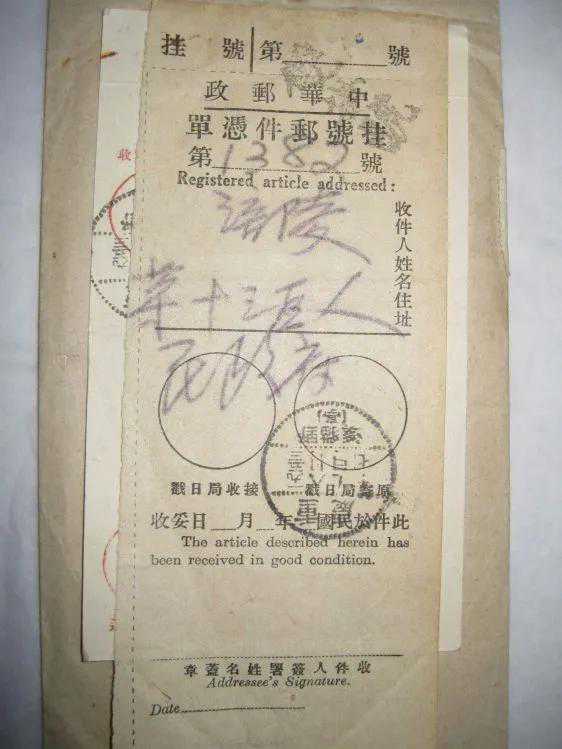 挂號 第 號
中華郵政
挂號郵件憑單
第1382號
Registered article addressed:
收件人姓名住址
涪陵
第十三区人
民政府
原寄局日戳 接收局日戳
重慶
此件於民國 年 月 日妥收
The article described herein has
been received in good condition.
收件人簽署姓名蓋章
Addressee's Signature.
Date